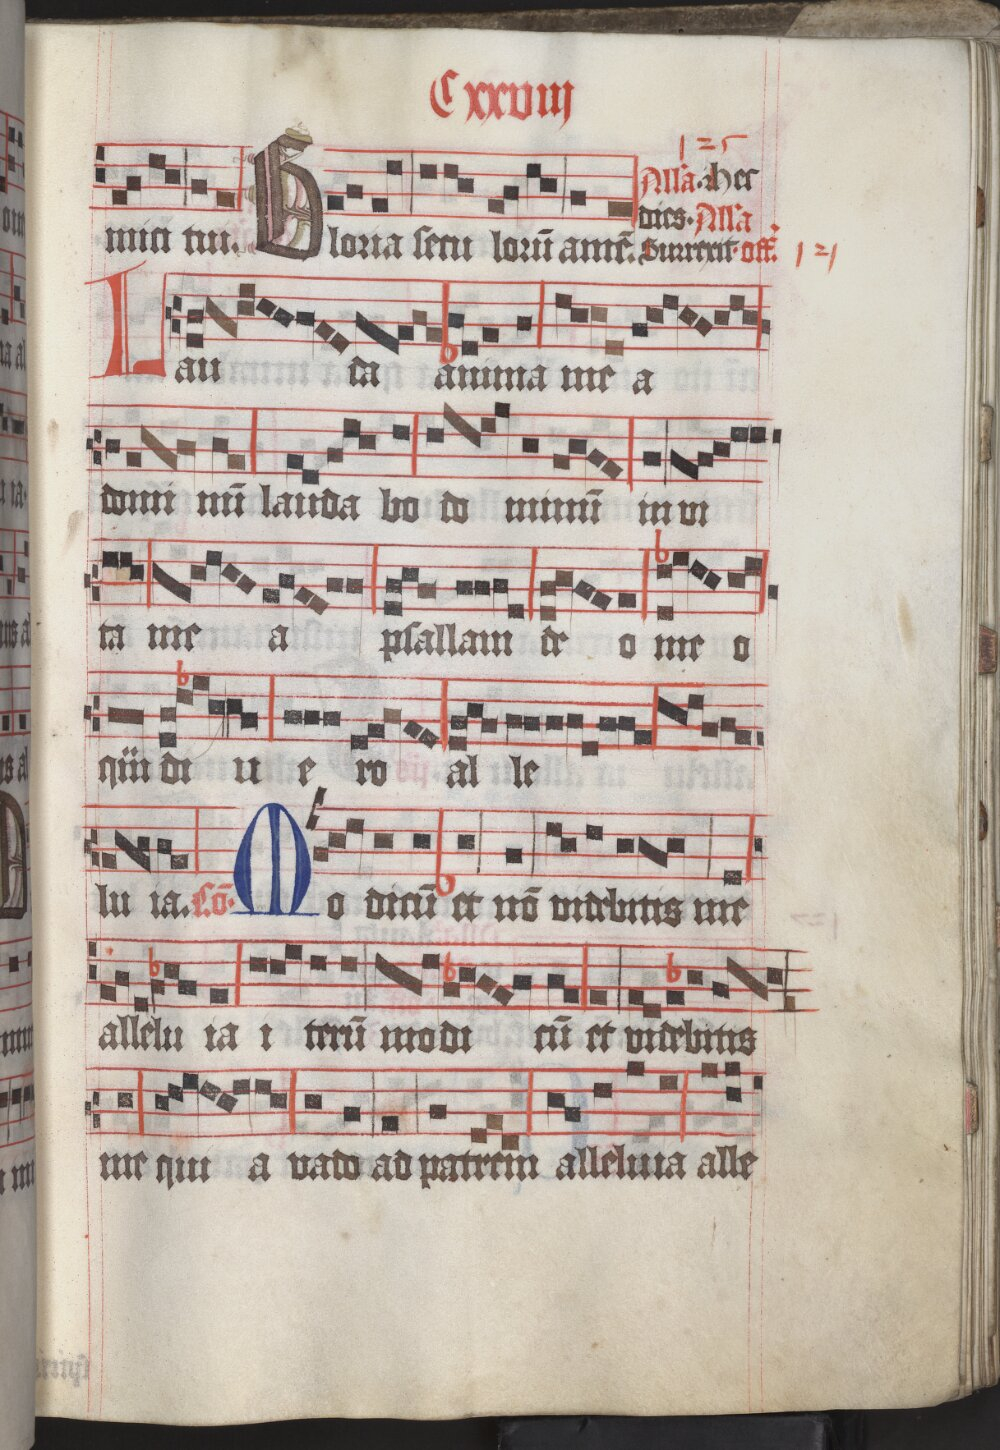 Cxxviij
125
mici tui. Gloria secu lorū amē. Alla. Hec
dies. Alla
Surrexit. off. 121
Lau da anima me a
domi nū lauda bo do minū in vi
ta me a psallam de o me o
qͥi di u e ro al le
lu ia. Cō. Mo dicū et nō videbitis me
allelu ia i terū modi cū et videbitis
me qui a vado ad patrem alleluia alle